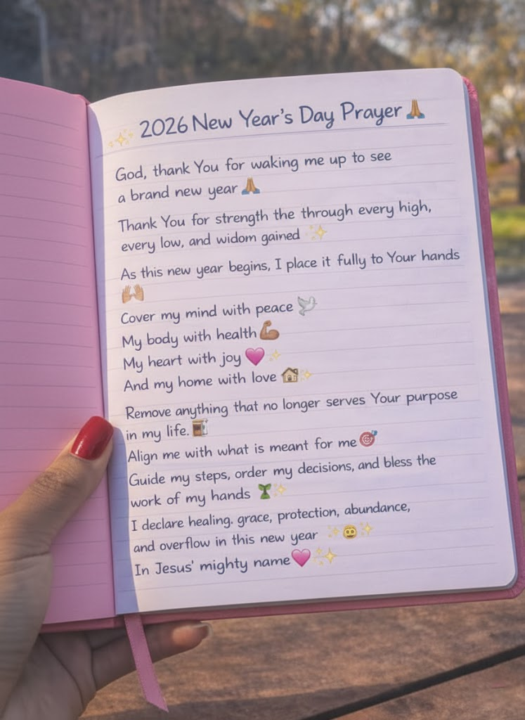 ✨ 2026 New Year's Day Prayer 🙏
God, thank You for waking me up to see
a brand new year 🙏
Thank You for strength the through every high,
every low, and widom gained ✨
As this new year begins, I place it fully to Your hands
🙌
Cover my mind with peace 🕊️
My body with health 💪
My heart with joy 💗✨
And my home with love 🏠✨
Remove anything that no longer serves Your purpose
in my life. 🚪
Align me with what is meant for me 🎯
Guide my steps, order my decisions, and bless the
work of my hands 🌱✨
I declare healing. grace, protection, abundance,
and overflow in this new year ✨😊✨
In Jesus' mighty name 💗✨